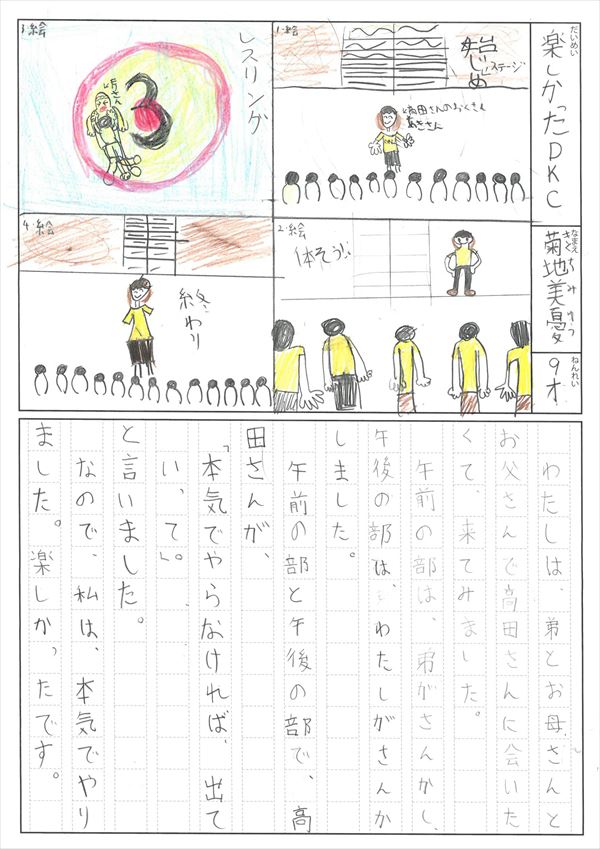 だいめい
楽しかったDKC
なまえ
きくち みゆう
菊地美憂
ねんれい
9才
1・絵
始じめ
ステージ
高田さんのおくさん
あきさん
2・絵
体そう
3・絵
レスリング
4・絵
終わり
わたしは、弟とお母さんと
お父さんで高田さんに会いた
くて、来てみました。
午前の部は、弟がさんかし、
午後の部は、わたしがさんか
しました。
午前の部と午後の部で、高
田さんが、
「本気でやらなければ、出て
い、て」。
と言いました。
なので、私は、本気でやり
ました。楽しかったです。